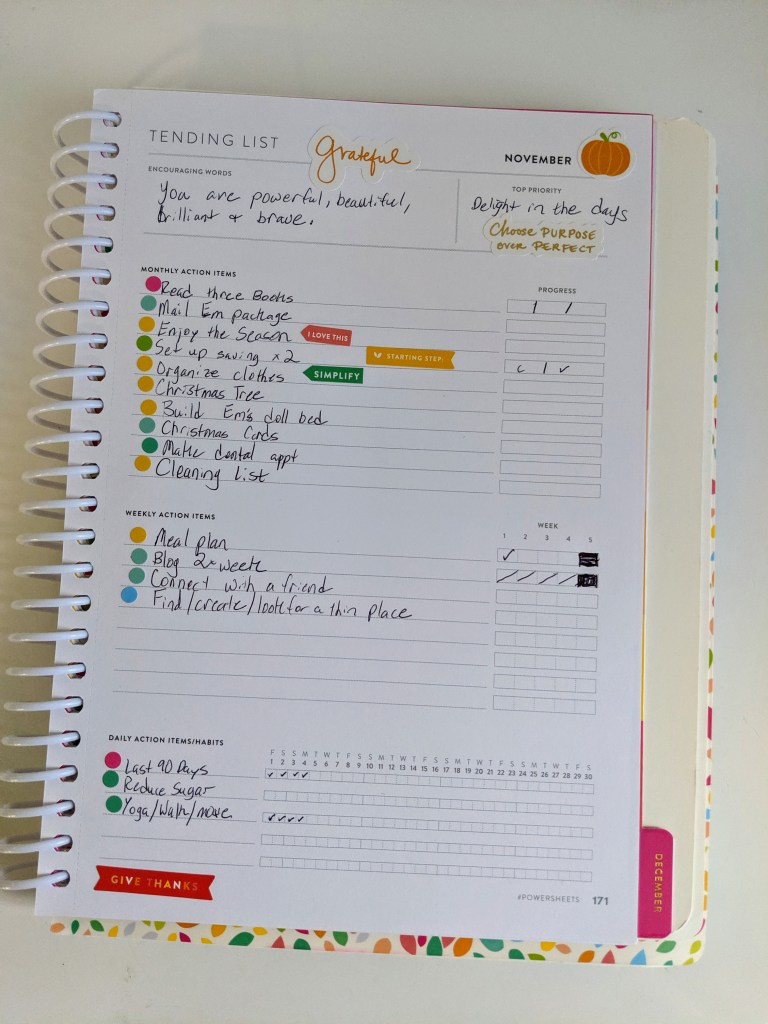 TENDING LIST
grateful
NOVEMBER
ENCOURAGING WORDS
You are powerful, beautiful,
brilliant & brave.
TOP PRIORITY
Delight in the days
Choose PURPOSE
over PERFECT
MONTHLY ACTION ITEMS
PROGRESS
Read three Books
Mail Em package
Enjoy the Season
I LOVE THIS
Set up saving x2
STARTING STEP:
Organize clothes
SIMPLIFY
Christmas Tree
Build Em's doll bed
Christmas Cards
Make dental appt
Cleaning List
WEEKLY ACTION ITEMS
WEEK
1 2 3 4 5
Meal plan
Blog 2x week
Connect with a friend
Find/create/look for a thin place
DAILY ACTION ITEMS/HABITS
F S S M T W T F S S M T W T F S S M T W T F S S M T W T F S
1 2 3 4 5 6 7 8 9 10 11 12 13 14 15 16 17 18 19 20 21 22 23 24 25 26 27 28 29 30
Last 90 Days
Reduce Sugar
Yoga/Walk/move
GIVE THANKS
#POWERSHEETS 171
DECEMBER